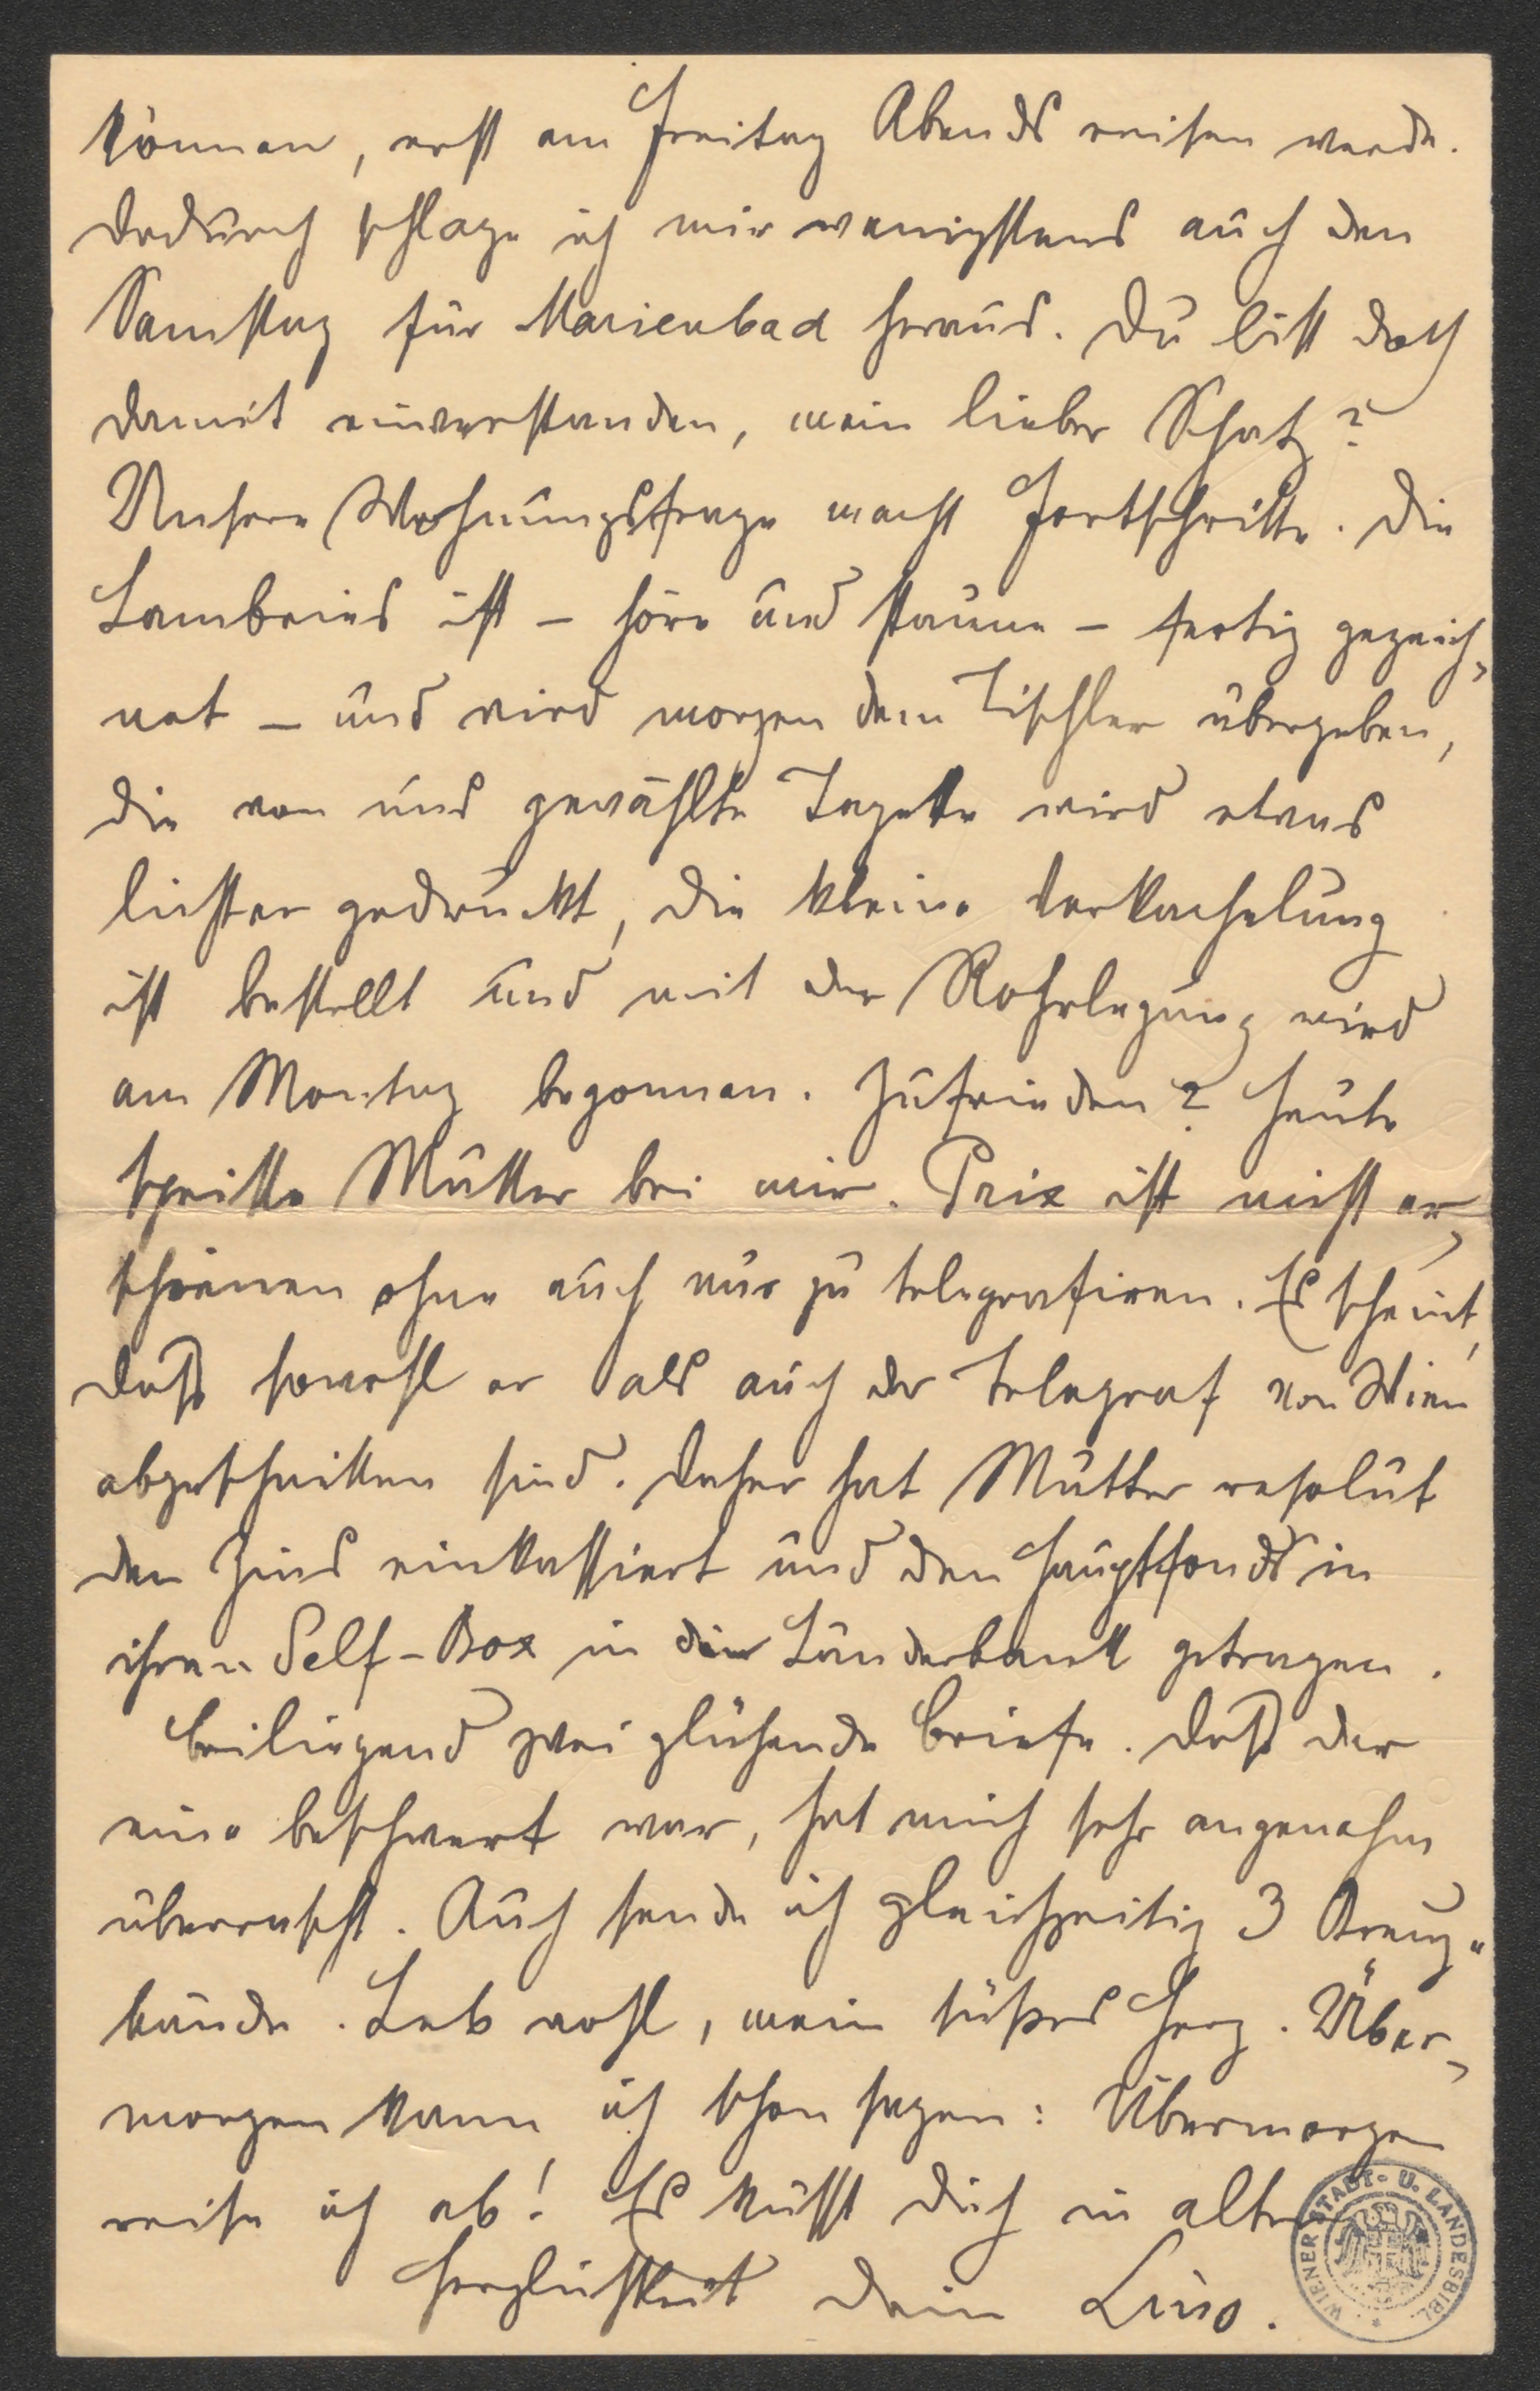 können, erst am Freitag Abends reisen werde.
Dadurch schlage ich mir wenigstens auch den
Samstag für Marienbad heraus. Du bist doch
damit einverstanden, mein lieber Schatz?
Unsere Wohnungsfrage macht Fortschritte. Die
Lambries ist – höre und staune – fertig gezeich-
net – und wird morgen dem Tischler übergeben,
die von uns gewählte Tapette wird etwas
lichter gedruckt, die kleine Verkachelung
ist bestellt und mit der Rohrlegung wird
am Montag begonnen. Zufrieden? Heute
speiste Mutter bei mir. Prix ist nicht er-
schienen ohne auch nur zu telegrafiren. Es scheint,
daß sowohl er als auch der Telegraf von Wien
abgeschnitten sind. Daher hat Mutter resolut
den Zins einkassiert und den Hauptfonds in
ihren Self-Box in die Länderbank getragen.
Beiliegend zwei glühende Briefe. Daß der
eine beschwert war, hat mich sehr angenehm
überrascht. Auch sende ich gleichzeitig 3 Kreuz-
bände. Leb wohl, mein süßes Herz. Über-
morgen kann ich schon sagen: Übermorgen
reise ich ab! Es küsst Dich in alter
Herzlichkeit Dein Lino.
WIENER STADT- U. LANDESBIBL.